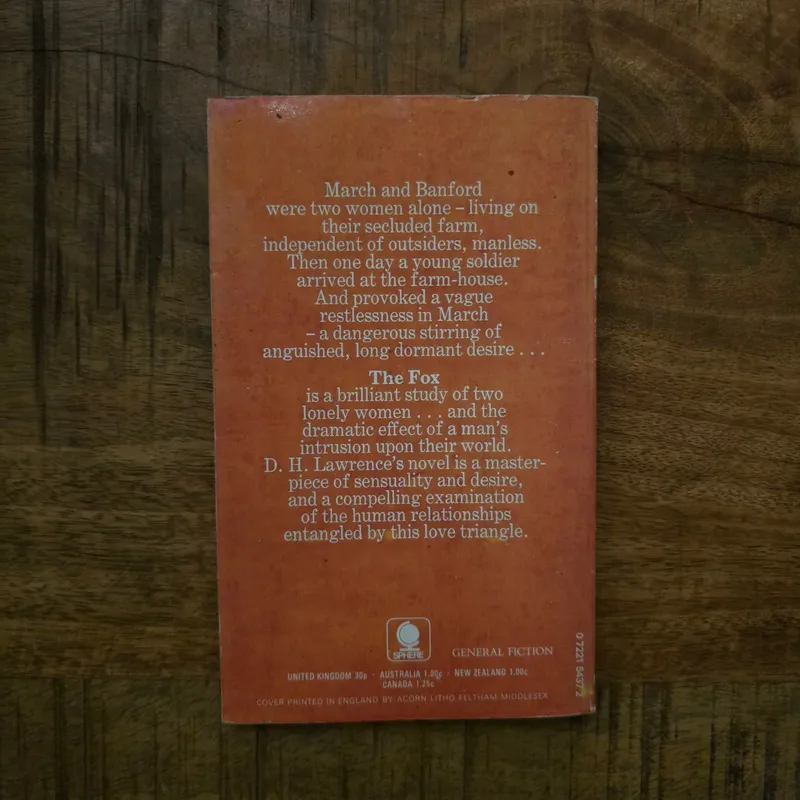 March and Banford
were two women alone – living on
their secluded farm,
independent of outsiders, manless.
Then one day a young soldier
arrived at the farm-house.
And provoked a vague
restlessness in March
– a dangerous stirring of
anguished, long dormant desire . . .
The Fox
is a brilliant study of two
lonely women . . . and the
dramatic effect of a man's
intrusion upon their world.
D. H. Lawrence's novel is a master-
piece of sensuality and desire,
and a compelling examination
of the human relationships
entangled by this love triangle.
SPHERE
GENERAL FICTION
0 7221 5437 2
UNITED KINGDOM 30p · AUSTRALIA 1.00c · NEW ZEALAND 1.00c
CANADA 1.25c
COVER PRINTED IN ENGLAND BY ACORN LITHO FELTHAM MIDDLESEX